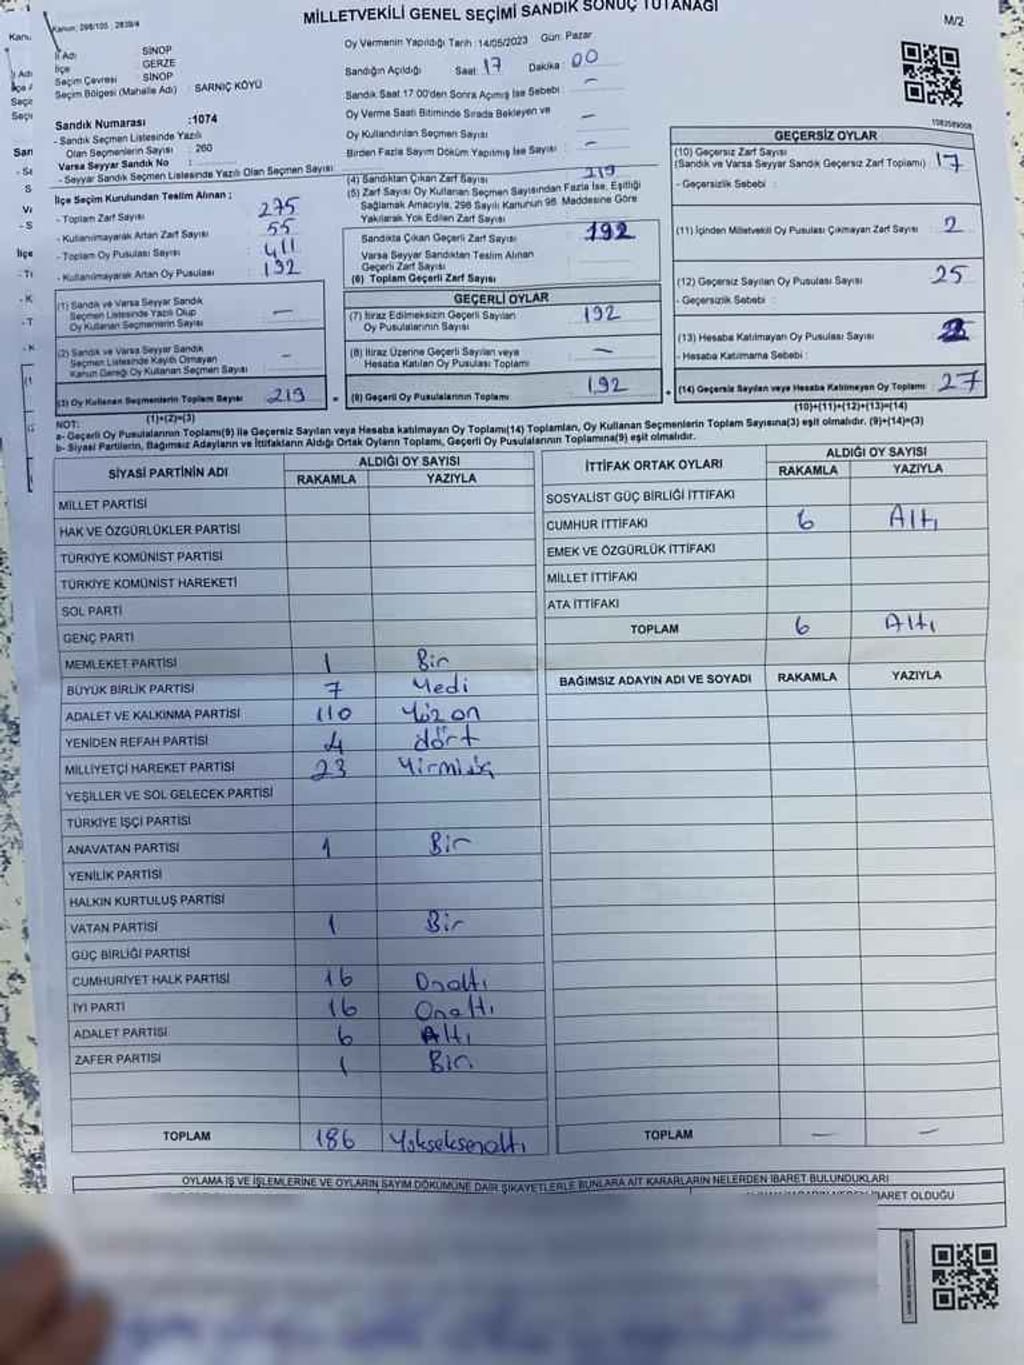 MİLLETVEKİLİ GENEL SEÇİMİ SANDIK SONUÇ TUTANAĞI
M/2
İl Adı SİNOP
İlçe GERZE
Seçim Çevresi SİNOP
Seçim Bölgesi (Mahalle Adı) SARNIÇ KÖYÜ
Sandık Numarası :1074
- Sandık Seçmen Listesinde Yazılı
Olan Seçmenlerin Sayısı : 260
Varsa Seyyar Sandık No :
- Seyyar Sandık Seçmen Listesinde Yazılı Olan Seçmen Sayısı
İlçe Seçim Kurulundan Teslim Alınan ;
- Toplam Zarf Sayısı 275
- Kullanılmayarak Artan Zarf Sayısı 55
- Toplam Oy Pusulası Sayısı 411
- Kullanılmayarak Artan Oy Pusulası 192
(1) Sandık ve Varsa Seyyar Sandık
Seçmen Listesinde Yazılı Olup
Oy Kullanan Seçmenlerin Sayısı —
(2) Sandık ve Varsa Seyyar Sandık
Seçmen Listesinde Kayıtlı Olmayan
Kanun Gereği Oy Kullanan Seçmen Sayısı –
(3) Oy Kullanan Seçmenlerin Toplam Sayısı 219
(1)+(2)=(3)
Oy Vermenin Yapıldığı Tarih : 14/05/2023 Gün: Pazar
Sandığın Açıldığı Saat: 17 Dakika: 00
Sandık Saat 17:00'den Sonra Açılmış İse Sebebi : –
Oy Verme Saati Bitiminde Sırada Bekleyen ve
Oy Kullandırılan Seçmen Sayısı –
Birden Fazla Sayım Döküm Yapılmış İse Sayısı : –
(4) Sandıktan Çıkan Zarf Sayısı 219
(5) Zarf Sayısı Oy Kullanan Seçmen Sayısından Fazla İse, Eşitliği
Sağlamak Amacıyla, 298 Sayılı Kanunun 98. Maddesine Göre
Yakılarak Yok Edilen Zarf Sayısı
Sandıkta Çıkan Geçerli Zarf Sayısı 192
Varsa Seyyar Sandıktan Teslim Alınan
Geçerli Zarf Sayısı
(6) Toplam Geçerli Zarf Sayısı
GEÇERLİ OYLAR
(7) İtiraz Edilmeksizin Geçerli Sayılan
Oy Pusulalarının Sayısı 192
(8) İtiraz Üzerine Geçerli Sayılan veya
Hesaba Katılan Oy Pusulası Toplamı –
(9) Geçerli Oy Pusulalarının Toplamı 192
1083589008
GEÇERSİZ OYLAR
(10) Geçersiz Zarf Sayısı
(Sandık ve Varsa Seyyar Sandık Geçersiz Zarf Toplamı) 17
- Geçersizlik Sebebi :
(11) İçinden Milletvekili Oy Pusulası Çıkmayan Zarf Sayısı 2
(12) Geçersiz Sayılan Oy Pusulası Sayısı 25
- Geçersizlik Sebebi :
(13) Hesaba Katılmayan Oy Pusulası Sayısı
- Hesaba Katılmama Sebebi :
(14) Geçersiz Sayılan veya Hesaba Katılmayan Oy Toplamı 27
(10)+(11)+(12)+(13)=(14)
NOT:
a- Geçerli Oy Pusulalarının Toplamı(9) ile Geçersiz Sayılan veya Hesaba katılmayan Oy Toplamı(14) Toplamları, Oy Kullanan Seçmenlerin Toplam Sayısına(3) eşit olmalıdır. (9)+(14)=(3)
b- Siyasi Partilerin, Bağımsız Adayların ve İttifakların Aldığı Ortak Oyların Toplamı, Geçerli Oy Pusulalarının Toplamına(9) eşit olmalıdır.
SİYASİ PARTİNİN ADI ALDIĞI OY SAYISI
RAKAMLA YAZIYLA
MİLLET PARTİSİ
HAK VE ÖZGÜRLÜKLER PARTİSİ
TÜRKİYE KOMÜNİST PARTİSİ
TÜRKİYE KOMÜNİST HAREKETİ
SOL PARTİ
GENÇ PARTİ
MEMLEKET PARTİSİ 1 Bir
BÜYÜK BİRLİK PARTİSİ 7 Yedi
ADALET VE KALKINMA PARTİSİ 110 Yüz on
YENİDEN REFAH PARTİSİ 4 dört
MİLLİYETÇİ HAREKET PARTİSİ 23
YEŞİLLER VE SOL GELECEK PARTİSİ
TÜRKİYE İŞÇİ PARTİSİ
ANAVATAN PARTİSİ 1 Bir
YENİLİK PARTİSİ
HALKIN KURTULUŞ PARTİSİ
VATAN PARTİSİ 1 Bir
GÜÇ BİRLİĞİ PARTİSİ
CUMHURİYET HALK PARTİSİ 16 Onaltı
İYİ PARTİ 16 Onaltı
ADALET PARTİSİ 6 Altı
ZAFER PARTİSİ 1 Bir
TOPLAM 186 Yükseksenaltı
İTTİFAK ORTAK OYLARI ALDIĞI OY SAYISI
RAKAMLA YAZIYLA
SOSYALİST GÜÇ BİRLİĞİ İTTİFAKI
CUMHUR İTTİFAKI 6 Altı
EMEK VE ÖZGÜRLÜK İTTİFAKI
MİLLET İTTİFAKI
ATA İTTİFAKI
TOPLAM 6 Altı
BAĞIMSIZ ADAYIN ADI VE SOYADI RAKAMLA YAZIYLA
TOPLAM — —
OYLAMA İŞ VE İŞLEMLERİNE VE OYLARIN SAYIM DÖKÜMÜNE DAİR ŞİKAYETLERLE BUNLARA AİT KARARLARIN NELERDEN İBARET BULUNDUKLARI